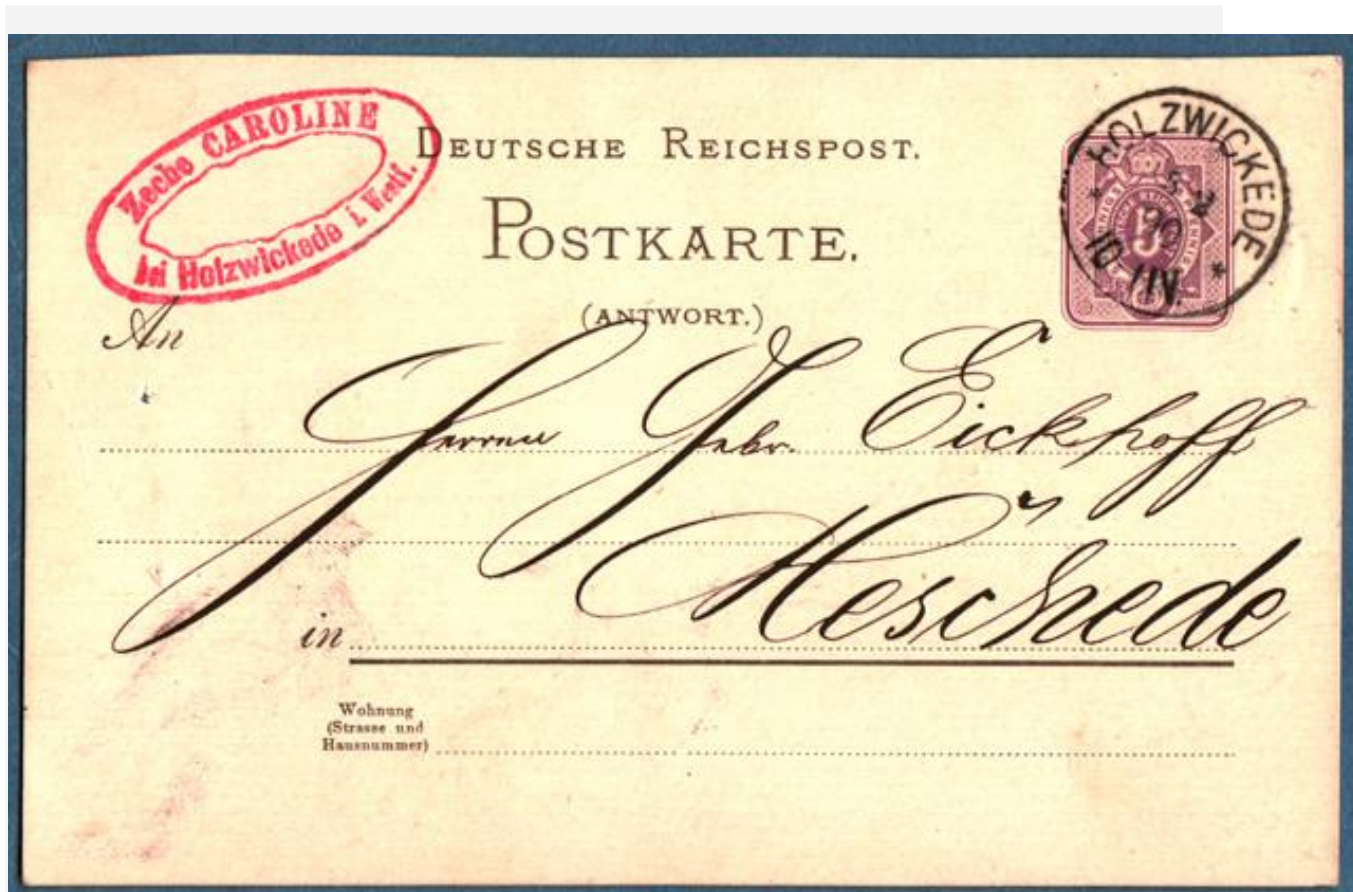 Zeche CAROLINE
bei Holzwickede i. Westf.
DEUTSCHE REICHSPOST.
POSTKARTE.
(ANTWORT.)
HOLZWICKEDE
90
5
An
Herren Gebr. Eickhoff
in Meschede
Wohnung
(Strasse und
Hausnummer)